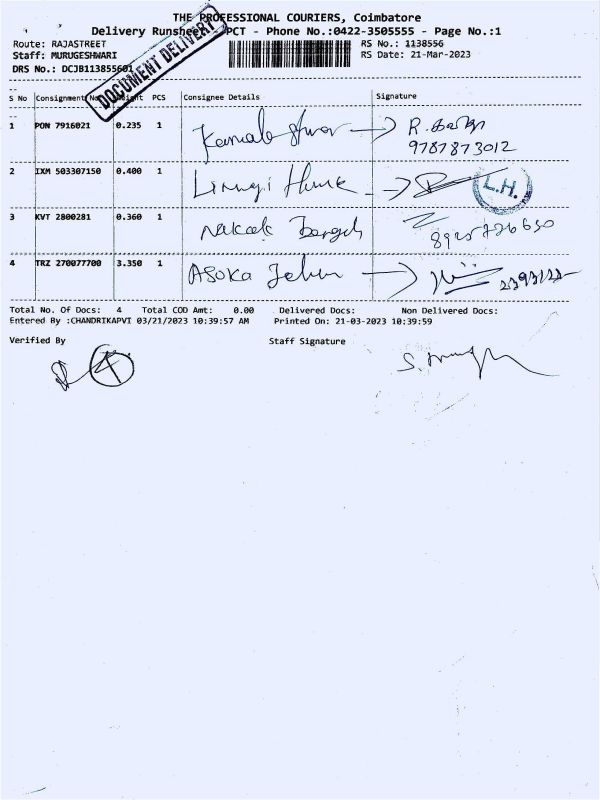 THE PROFESSIONAL COURIERS, Coimbatore
Delivery Runsheet PCT - Phone No.:0422-3505555 - Page No.:1
Route: RAJASTREET
RS No.: 1138556
Staff: MURUGESHWARI
RS Date: 21-Mar-2023
DRS No.: DCJB113855601
DOCUMENT DELIVERY
S No Consignment No Weight PCS Consignee Details Signature
1 PON 7916021 0.235 1
9787873012
2 IXM 503307150 0.400 1
L.H.
3 KVT 2800281 0.360 1
4 TRZ 270077700 3.350 1 Asoka
Total No. Of Docs: 4 Total COD Amt: 0.00 Delivered Docs: Non Delivered Docs:
Entered By :CHANDRIKAPVI 03/21/2023 10:39:57 AM Printed On: 21-03-2023 10:39:59
Verified By Staff Signature
4